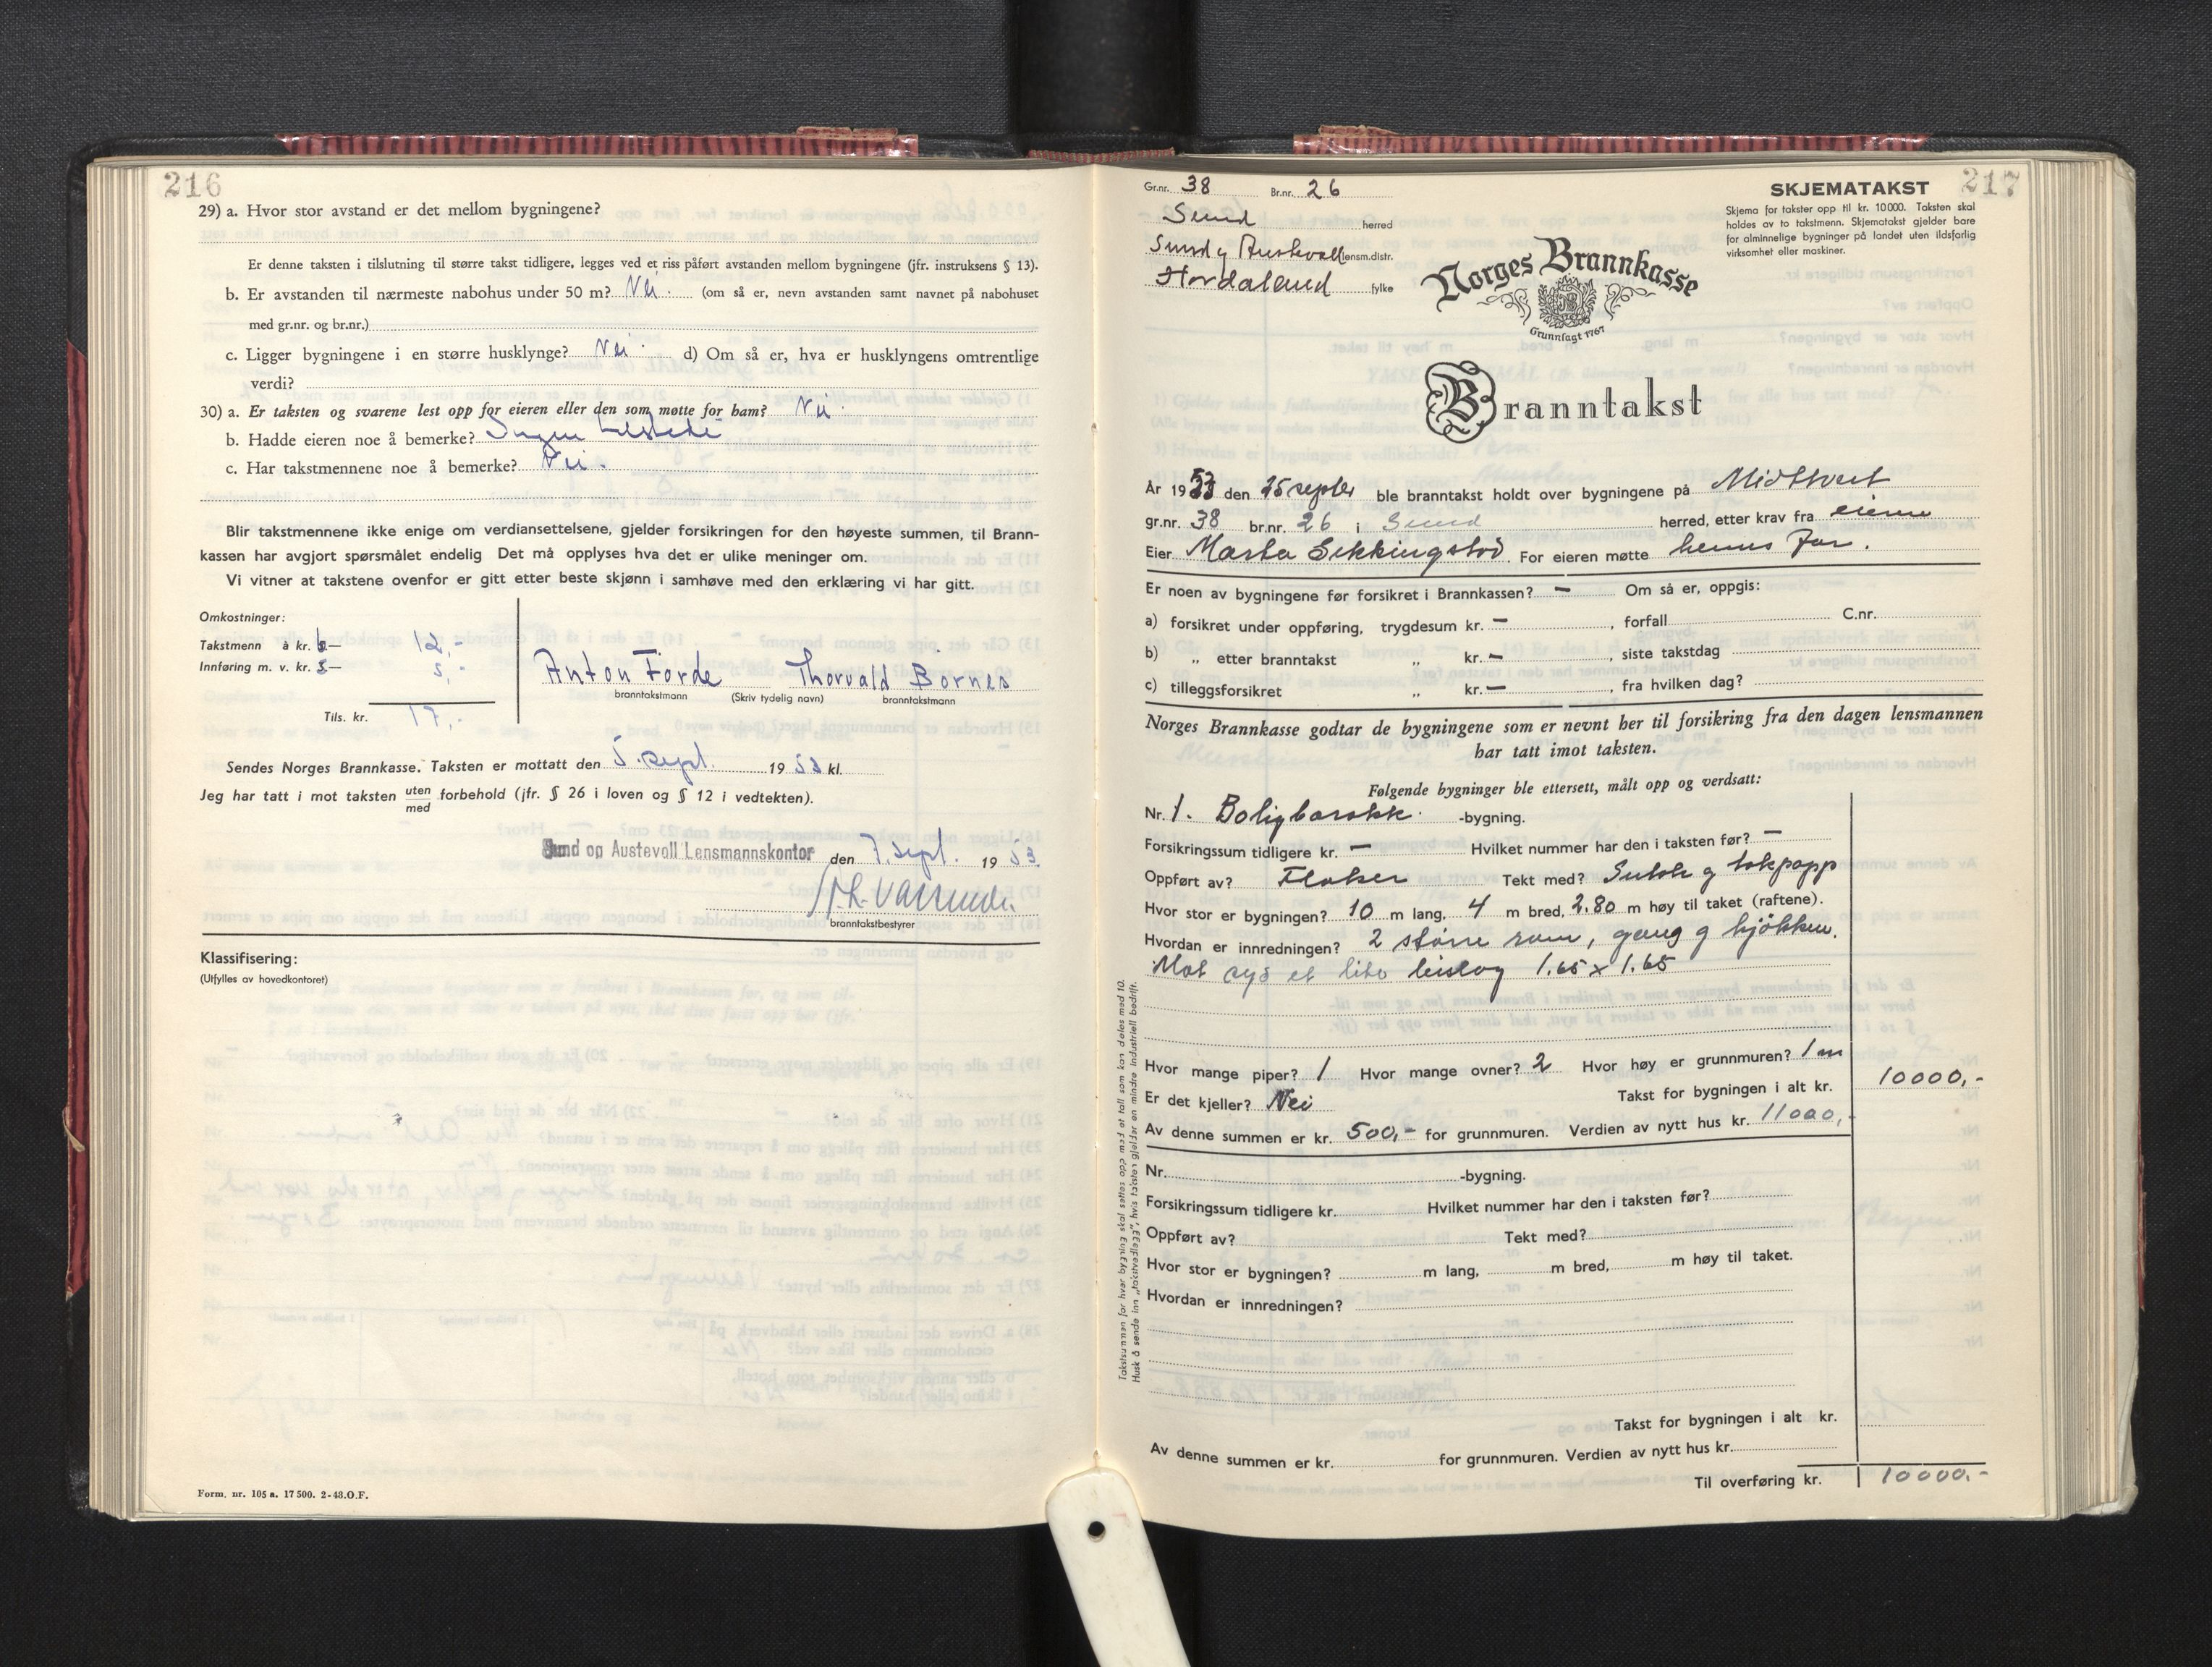 216
29) a. Hvor stor avstand er det mellom bygningene?
Er denne taksten i tilslutning til større takst tidligere, legges ved et riss påført avstanden mellom bygningene (jfr. instruksens § 13).
b. Er avstanden til nærmeste nabohus under 50 m? Nei. (om så er, nevn avstanden samt navnet på nabohuset
med gr.nr. og br.nr.)
c. Ligger bygningene i en større husklynge? Nei. d) Om så er, hva er husklyngens omtrentlige
verdi?
30) a. Er taksten og svarene lest opp for eieren eller den som møtte for ham? Nei.
b. Hadde eieren noe å bemerke? Ingen tilstede
c. Har takstmennene noe å bemerke? Nei.
Blir takstmennene ikke enige om verdiansettelsene, gjelder forsikringen for den høyeste summen, til Brann-
kassen har avgjort spørsmålet endelig Det må opplyses hva det er ulike meninger om.
Vi vitner at takstene ovenfor er gitt etter beste skjønn i samhøve med den erklæring vi har gitt.
Omkostninger:
Takstmenn à kr. 6— 12,-
Innføring m. v. kr. 5— 5,-
Tils. kr. 17,-
Anton Førde Thorvald Børnes
branntakstmann (Skriv tydelig navn) branntakstmann
Sendes Norges Brannkasse. Taksten er mottatt den 5. sept. 1953 kl.
Jeg har tatt i mot taksten uten
med forbehold (jfr. § 26 i loven og § 12 i vedtekten).
Sund og Austevoll Lensmannskontor den 7. sept. 1953.
branntakstbestyrer
Klassifisering:
(Utfylles av hovedkontoret)
Form. nr. 105 a. 17 500. 2-48.O.F.
217
Gr.nr. 38 Br.nr. 26
Sund herred
Sund og Austevoll lensm.distr.
Hordaland fylke
SKJEMATAKST
Skjema for takster opp til kr. 10000. Taksten skal
holdes av to takstmenn. Skjematakst gjelder bare
for alminnelige bygninger på landet uten ildsfarlig
virksomhet eller maskiner.
Norges Brannkasse
Grunnlagt 1767
Branntakst
År 1953 den 25 septbr ble branntakst holdt over bygningene på Midttveit
gr.nr. 38 br.nr. 26 i Sund herred, etter krav fra eieren
Eier Marta Sekkingstad. For eieren møtte hennes far.
Er noen av bygningene før forsikret i Brannkassen? — Om så er, oppgis:
a) forsikret under oppføring, trygdesum kr. — , forfall C.nr.
b) „ etter branntakst „ kr. — , siste takstdag
c) tilleggsforsikret „ kr. — , fra hvilken dag?
Norges Brannkasse godtar de bygningene som er nevnt her til forsikring fra den dagen lensmannen
har tatt imot taksten.
Følgende bygninger ble ettersett, målt opp og verdsatt:
Nr. 1. Boligbarakk. -bygning.
Forsikringssum tidligere kr. — Hvilket nummer har den i taksten før? —
Oppført av? Flaker Tekt med? Sutak og takpapp
Hvor stor er bygningen? 10 m lang, 4 m bred, 2.80 m høy til taket (raftene).
Hvordan er innredningen? 2 større rom, gang og kjøkken.
Mot syd et lite 1.65 x 1.65
Hvor mange piper? 1 Hvor mange ovner? 2 Hvor høy er grunnmuren? 1 m
Er det kjeller? Nei Takst for bygningen i alt kr. 10000,-
Av denne summen er kr. 500,- for grunnmuren. Verdien av nytt hus kr. 11000,-
Nr. -bygning.
Forsikringssum tidligere kr. Hvilket nummer har den i taksten før?
Oppført av? Tekt med?
Hvor stor er bygningen? m lang, m bred, m høy til taket.
Hvordan er innredningen?
Takst for bygningen i alt kr.
Av denne summen er kr. for grunnmuren. Verdien av nytt hus kr.
Til overføring kr. 10000.-
Takstsummen for hver bygning skal settes opp med et tall som kan deles med 10.
Husk å sende inn „takstvedlegg", hvis taksten gjelder en mindre industriell bedrift.